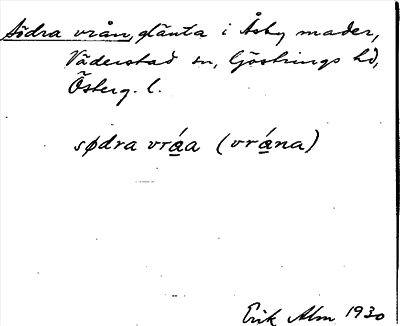 Södra vrån, glänta i Åsby mader,
Väderstad sn, Göstrings hd,
Österg. l.
sødra vráa (vrána)
Erik Alm 1930